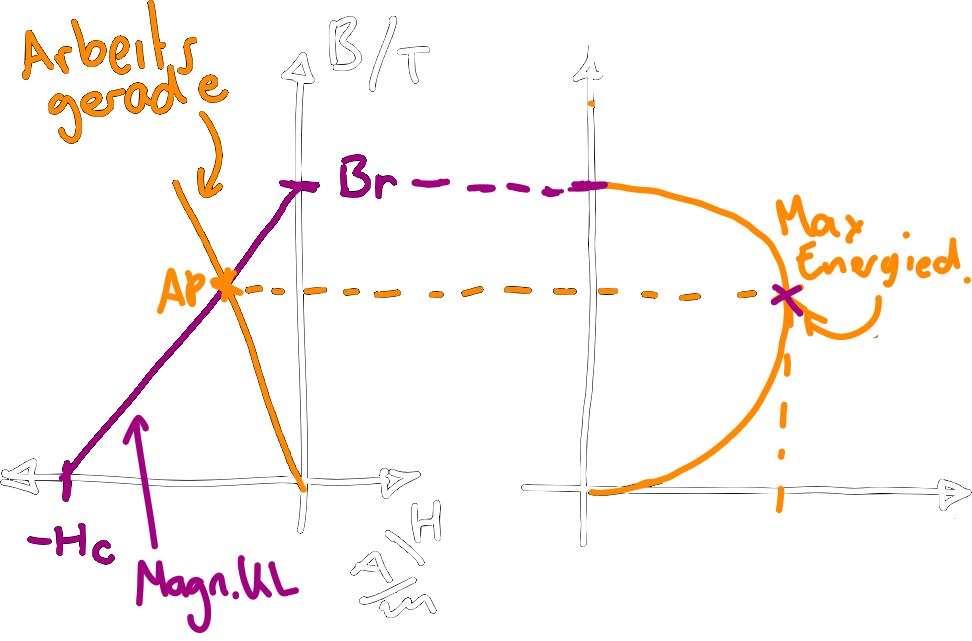 Arbeits
gerade
B/T
Br
Max
Energied.
AP
-Hc
Magn.KL
H
A/m